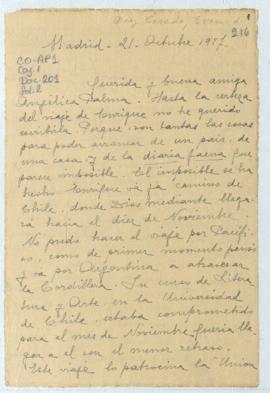 Díez Canedo, Enrique
1
216
Madrid - 21. Octubre 1927
CO-AP1
Caj. 1
Doc. 201
fol. 2
Querida y buena amiga
Angélica Palma. Hasta la certeza
del viaje de Enrique no he querido
escribirla Porque, son tantas las cosas
para poder arrancar de un país, de
una casa y de la diaria faena que
parece imposible. El imposible se ha
hecho Enrique va ya camino de
Chile, donde Dios mediante llega-
rá hacia el diez de Noviembre.
No pudo hacer el viaje por Pacífi-
co, como de primer momento pensó
y va por Argentina a atravesar
la Cordillera. Su curso de Litera
tura y Arte en la Universidad
de Chile, estaba comprometido
para el mes de Noviembre, quería lle-
gar a el con el menor retraso.
Este viaje lo patrocina la Unión